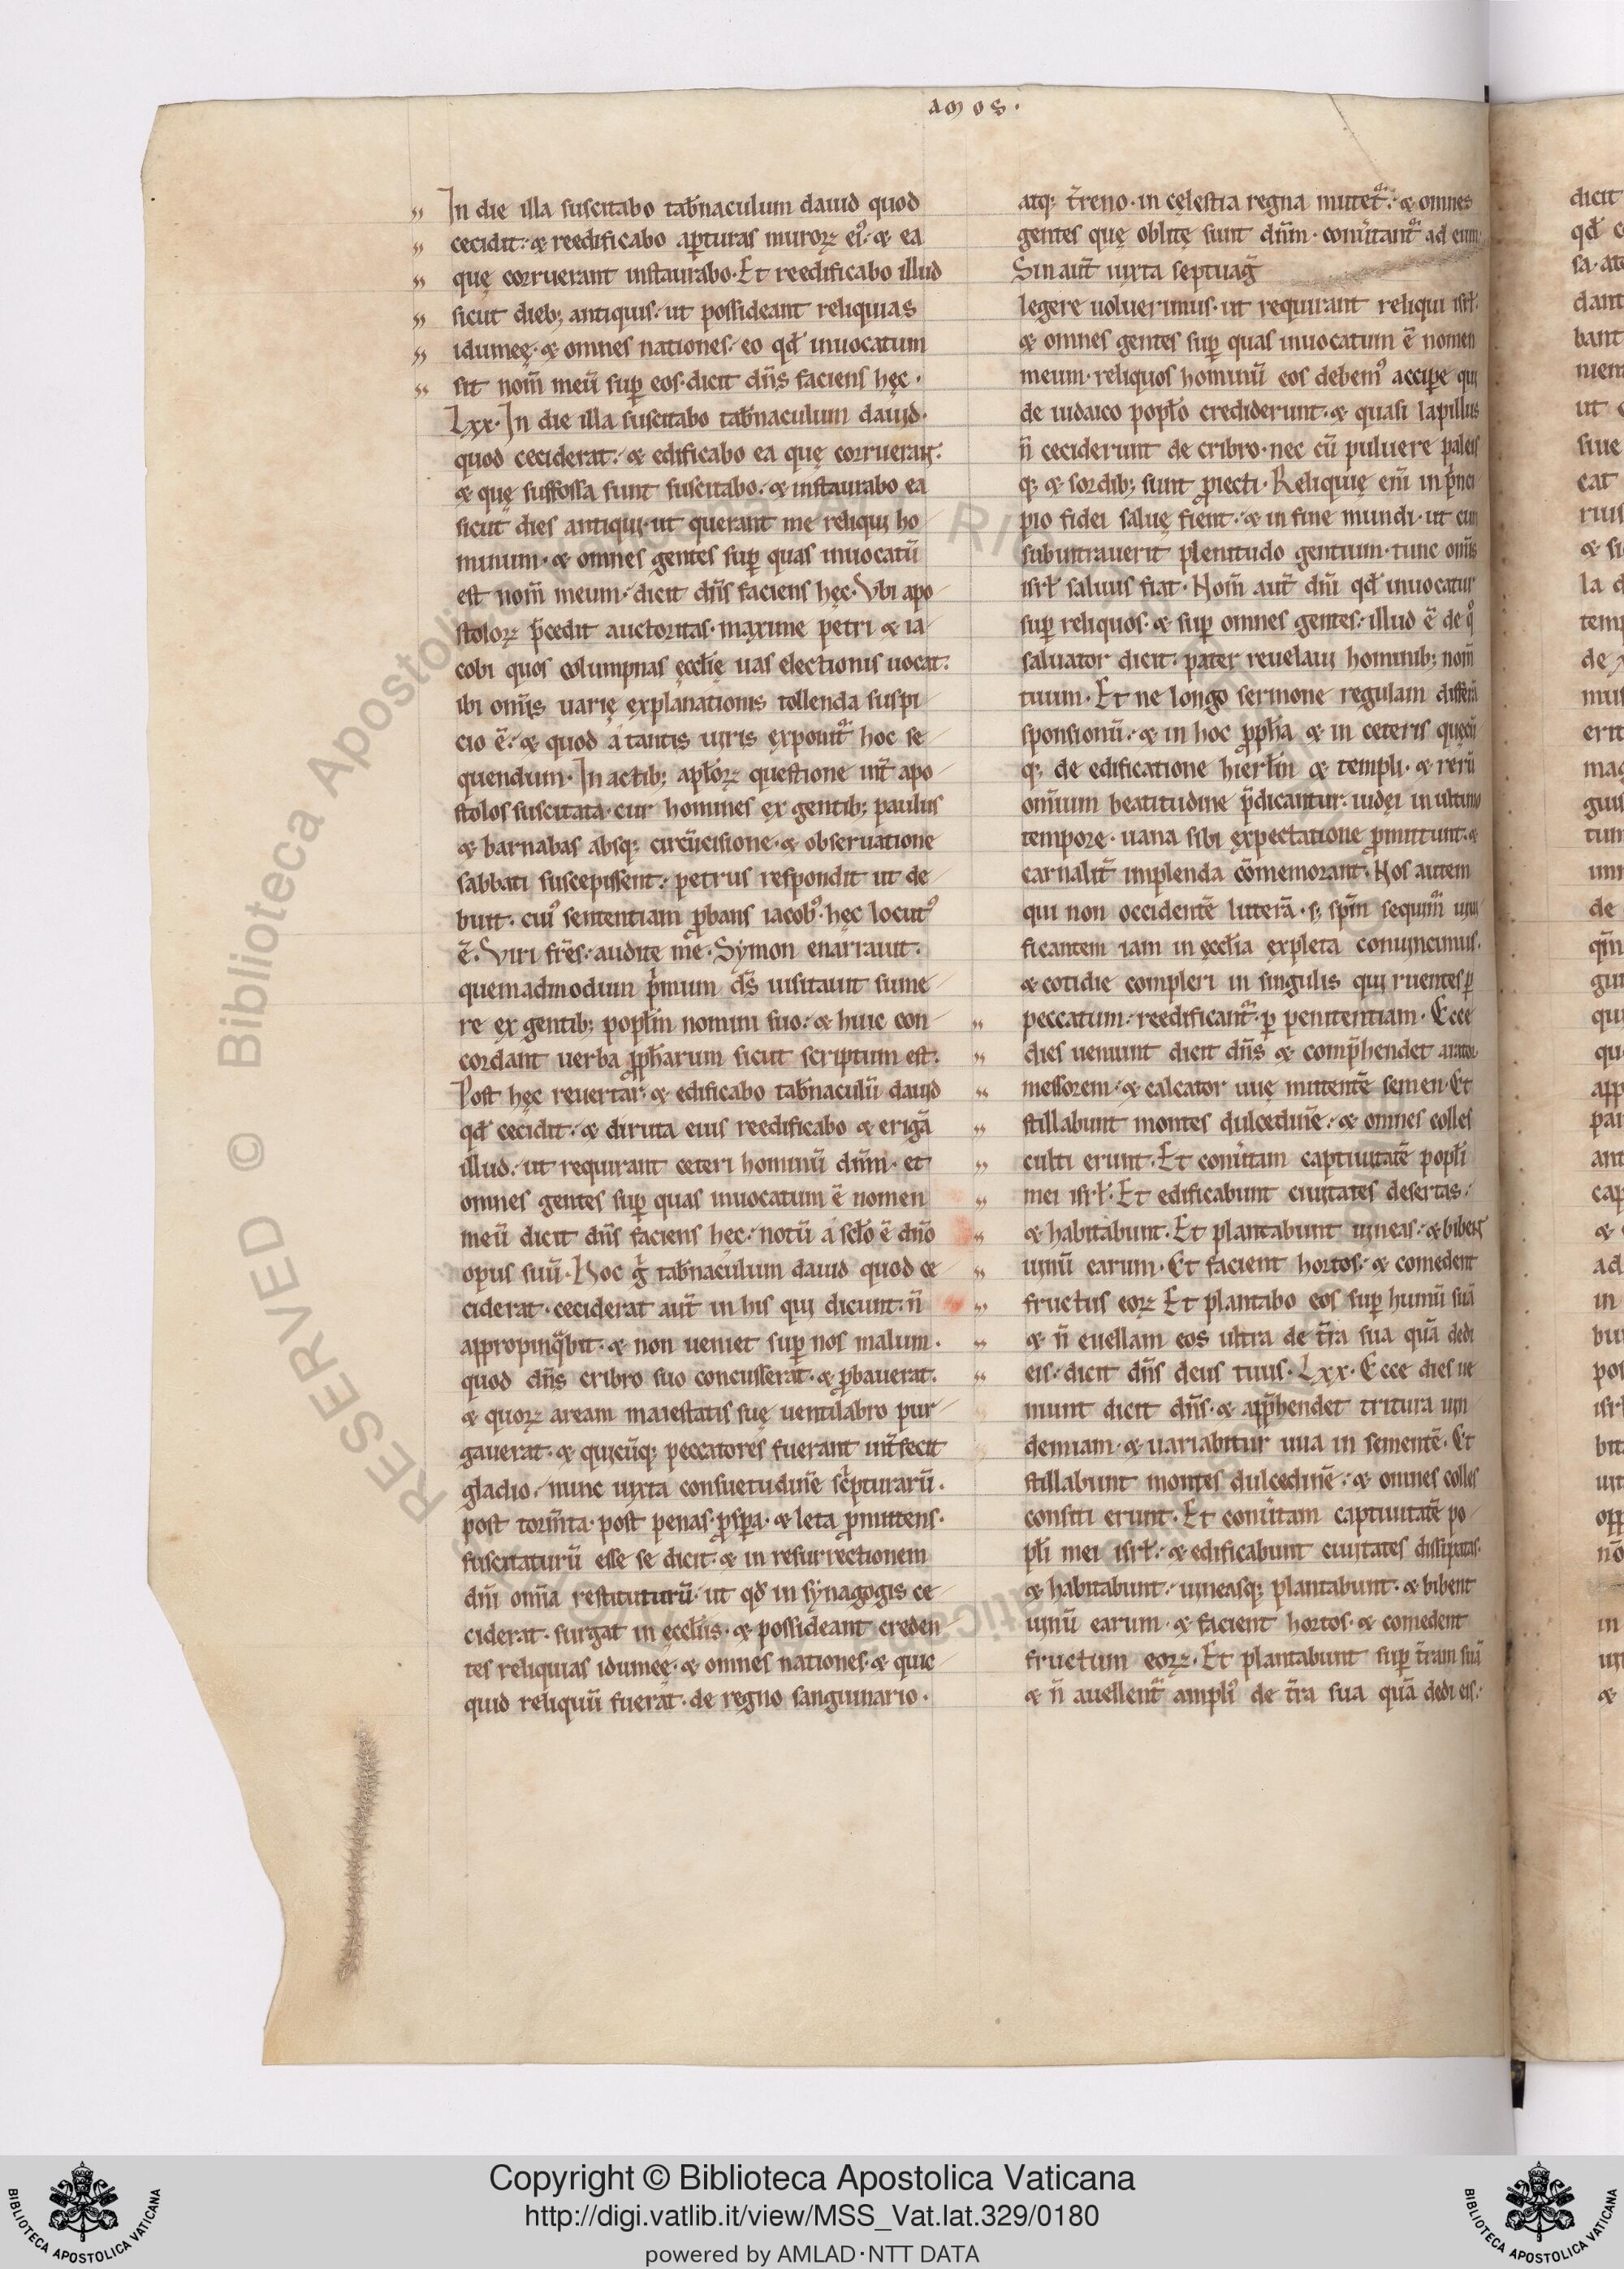 amos.
In die illa suscitabo tab̄naculum dauid quod
cecidit. & reedificabo aꝑturas muroꝝ ei᷒. & ea
quę corruerant instaurabo. Et reedificabo illud
sicut dieb; antiquis. ut possideant reliquias
idumeę. & omnes nationes. eo qđ inuocatum
sit nom̄ meū suꝑ eos. dicit dn̄s faciens hęc.
Lxx. In die illa suscitabo tab̄naculum dauid.
quod ceciderat. & edificabo ea quę corruerant.
& quę suffossa sunt suscitabo. & instaurabo ea
sicut dies antiqui. ut querant me reliqui ho
minum. & omnes gentes suꝑ quas inuocatū
est nom̄ meum. dicit dn̄s faciens hęc. Vbi apo
stoloꝝ p̄cedit auctoritas. maxime petri & ia
cobi quos columpnas ęcclię uas electionis uocat.
ibi om̄is uarię explanationis tollenda suspi
cio ē. & quod a tantis uiris exponit᷑ hoc se
quendum. In actib; apl̄oꝝ questione int̄ apo
stolos suscitata. cur homines ex gentib; paulus
& barnabas absq; circūcisione. & obseruatione
sabbati suscepissent. petrus respondit ut de
buit. cui᷒ sententiam ꝓbans iacob᷒. hęc locut᷒
ē. Viri fr̄s. audite me. Symon enarrauit.
quemadmodum p̄mum ds̄ uisitauit sume
re ex gentib; popl̄m nomini suo. & huic con
cordant uerba ꝓph̄arum sicut scriptum est.
Post hęc reuertar. & edificabo tab̄naculū dauid
qđ cecidit. & diruta eius reedificabo & erigā
illud. ut requirant ceteri hominū dn̄m. et
omnes gentes suꝑ quas inuocatum ē nomen
meū dicit dn̄s faciens hęc. notū a sc̄lo ē dn̄o
opus suū. Hoc g̊ tab̄naculum dauid quod ce
ciderat. ceciderat aut̄ in his qui dicunt. n̄
appropinq̄bit. & non ueniet suꝑ nos malum.
quod dn̄s cribro suo concusserat. & ꝓbauerat.
& quoꝝ aream maiestatis suę uentilabro pur
gauerat. & quicūq; peccatores fuerant int̄fecit
gladio. nunc iuxta consuetudinē sc̄pturarū.
post torm̄ta. post penas. ꝓsꝑa. & leta ꝓmittens.
suscitaturū esse se dicit. & in resurrectionem
dn̄i om̄ia restituturū. ut qđ in synagogis ce
ciderat. surgat in eccl̄iis. & possideant creden
tes reliquias idumeę. & omnes nationes. & quic
quid reliquū fuerat. de regno sanguinario.
atq; t̄reno. in celestia regna mutet᷑. & omnes
gentes quę oblitę sunt dn̄m. conu̇tant᷑ ad eum
Sin aut̄ iuxta septuag̃
legere uoluerimus. ut requirant reliqui isrl̄.
& omnes gentes suꝑ quas inuocatum ē nomen
meum. reliquos hominū eos debem᷒ acciꝑe qui
de iudaico popl̄o crediderunt. & quasi lapillus
n̄ ceciderunt de cribro. nec cū puluere paleis
q; & sordib; sunt ꝓiecti. Reliquię em̄ in p̄nci
pio fidei saluę fient. & in fine mundi. ut cum
subintrauerit plenitudo gentium. tunc om̄is
isrl̄ saluus fiat. Nom̄ aut̄ dn̄i qđ inuocatur
suꝑ reliquos. & suꝑ omnes gentes. illud ē de q̊
saluator dicit. pater reuelaui hominib; nom̄
tuum. Et ne longo sermone regulam differā
sponsionū. & in hoc ꝓph̄a & in ceteris quęcū
q; de edificatione hierl̄m & templi. & rerū
om̄ium beatitudine p̄dicantur. iudęi in ultimo
tempore. uana sibi expectatione ꝓmittunt. &
carnalit̄ implenda cōmemorant. Nos autem
qui non occidentē litterā. s; sp̄m sequim᷑ uiui
ficantem iam in eccl̄ia expleta conuincimus.
& cotidie compleri in singulis qui ruentes ꝑ
peccatum. reedificant᷑ ꝑ penitentiam. Ecce
dies ueniunt dicit dn̄s & comp̄hendet arator
messorem. & calcator uuę mittentē semen. Et
stillabunt montes dulcedinē. & omnes colles
culti erunt. Et conu̇tam captiuitatē popl̄i
mei isrl̄. Et edificabunt ciuitates desertas.
& habitabunt. Et plantabunt uineas. & bibent
uinū earum. Et facient hortos. & comedent
fructus eoꝝ Et plantabo eos suꝑ humū suā
& n̄ euellam eos ultra de t̄ra sua quā dedi
eis. dicit dn̄s deus tuus. Lxx. Ecce dies ue
niunt dicit dn̄s. & app̄hendet tritura uin
demiam. & uariabitur uua in sementē. Et
stillabunt montes dulcedinē. & omnes colles
consiti erunt. Et conu̇tam captiuitatē po
pl̄i mei isrl̄. & edificabunt ciuitates dissipatas.
& habitabunt. uineasq; plantabunt. & bibent
uinū earum. & facient hortos. & comedent
fructum eoꝝ. Et plantabunt suꝑ t̄ram suā
& n̄ auellent᷑ ampli᷒ de t̄ra sua quā dedi eis.
Copyright © Biblioteca Apostolica Vaticana
http://digi.vatlib.it/view/MSS_Vat.lat.329/0180
powered by AMLAD·NTT DATA
BIBLIOTECA APOSTOLICA VATICANA
BIBLIOTECA APOSTOLICA VATICANA